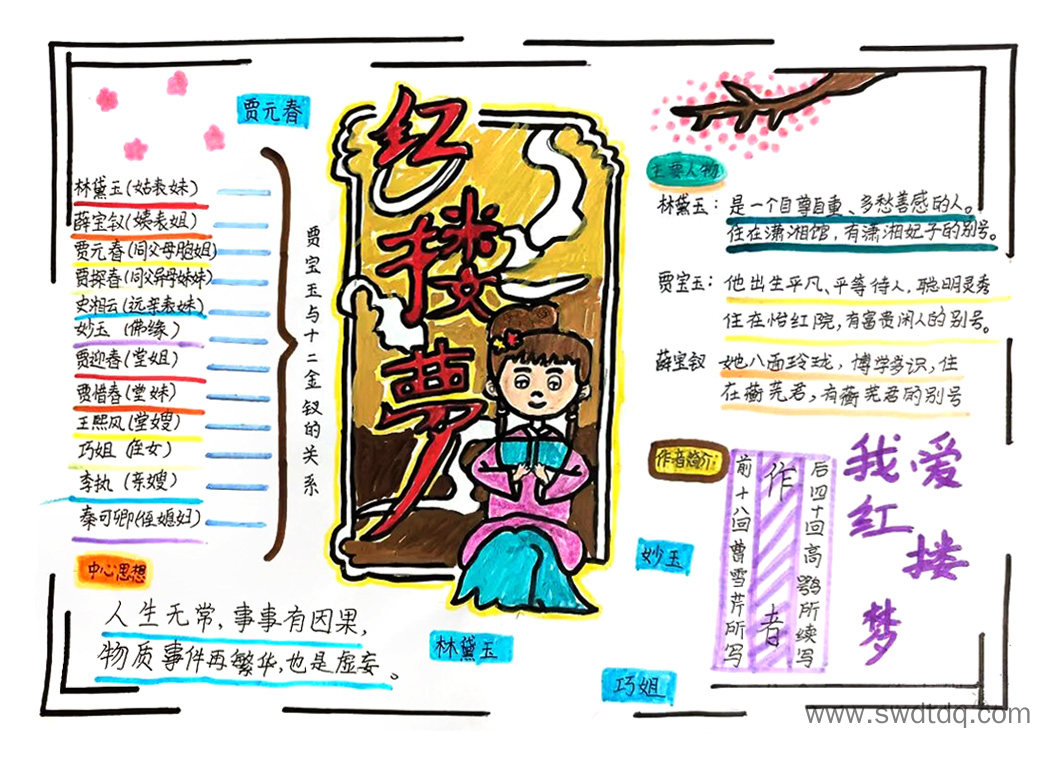 红搂夢
贾元春
林黛玉(姑表妹)
薛宝钗(姨表姐)
贾元春(同父母胞姐)
贾探春(同父异母妹妹)
史湘云(远亲表妹)
妙玉 (佛缘)
贾迎春(堂姐)
贾惜春(堂妹)
王熙凤(堂嫂)
巧姐 (侄女)
李执 (亲嫂)
秦可卿(侄媳妇)
贾宝玉与十二金钗的关系
中心思想
人生无常,事事有因果,
物质事件再繁华,也是虚妄。
林黛玉
妙玉
巧姐
主要人物
林黛玉: 是一个自尊自重、多愁善感的人。
住在潇湘馆,有潇湘妃子的别号。
贾宝玉: 他出生平凡、平等待人,聪明灵秀
住在怡红院,有富贵闲人的别号。
薛宝钗 她八面玲珑,博学多识,住
在蘅芜君,有蘅芜君的别号
作者简介:
前十八回曹雪芹所写
作者
后四十回高鹗所续写
我爱
红搂
梦
www.swdtdq.com